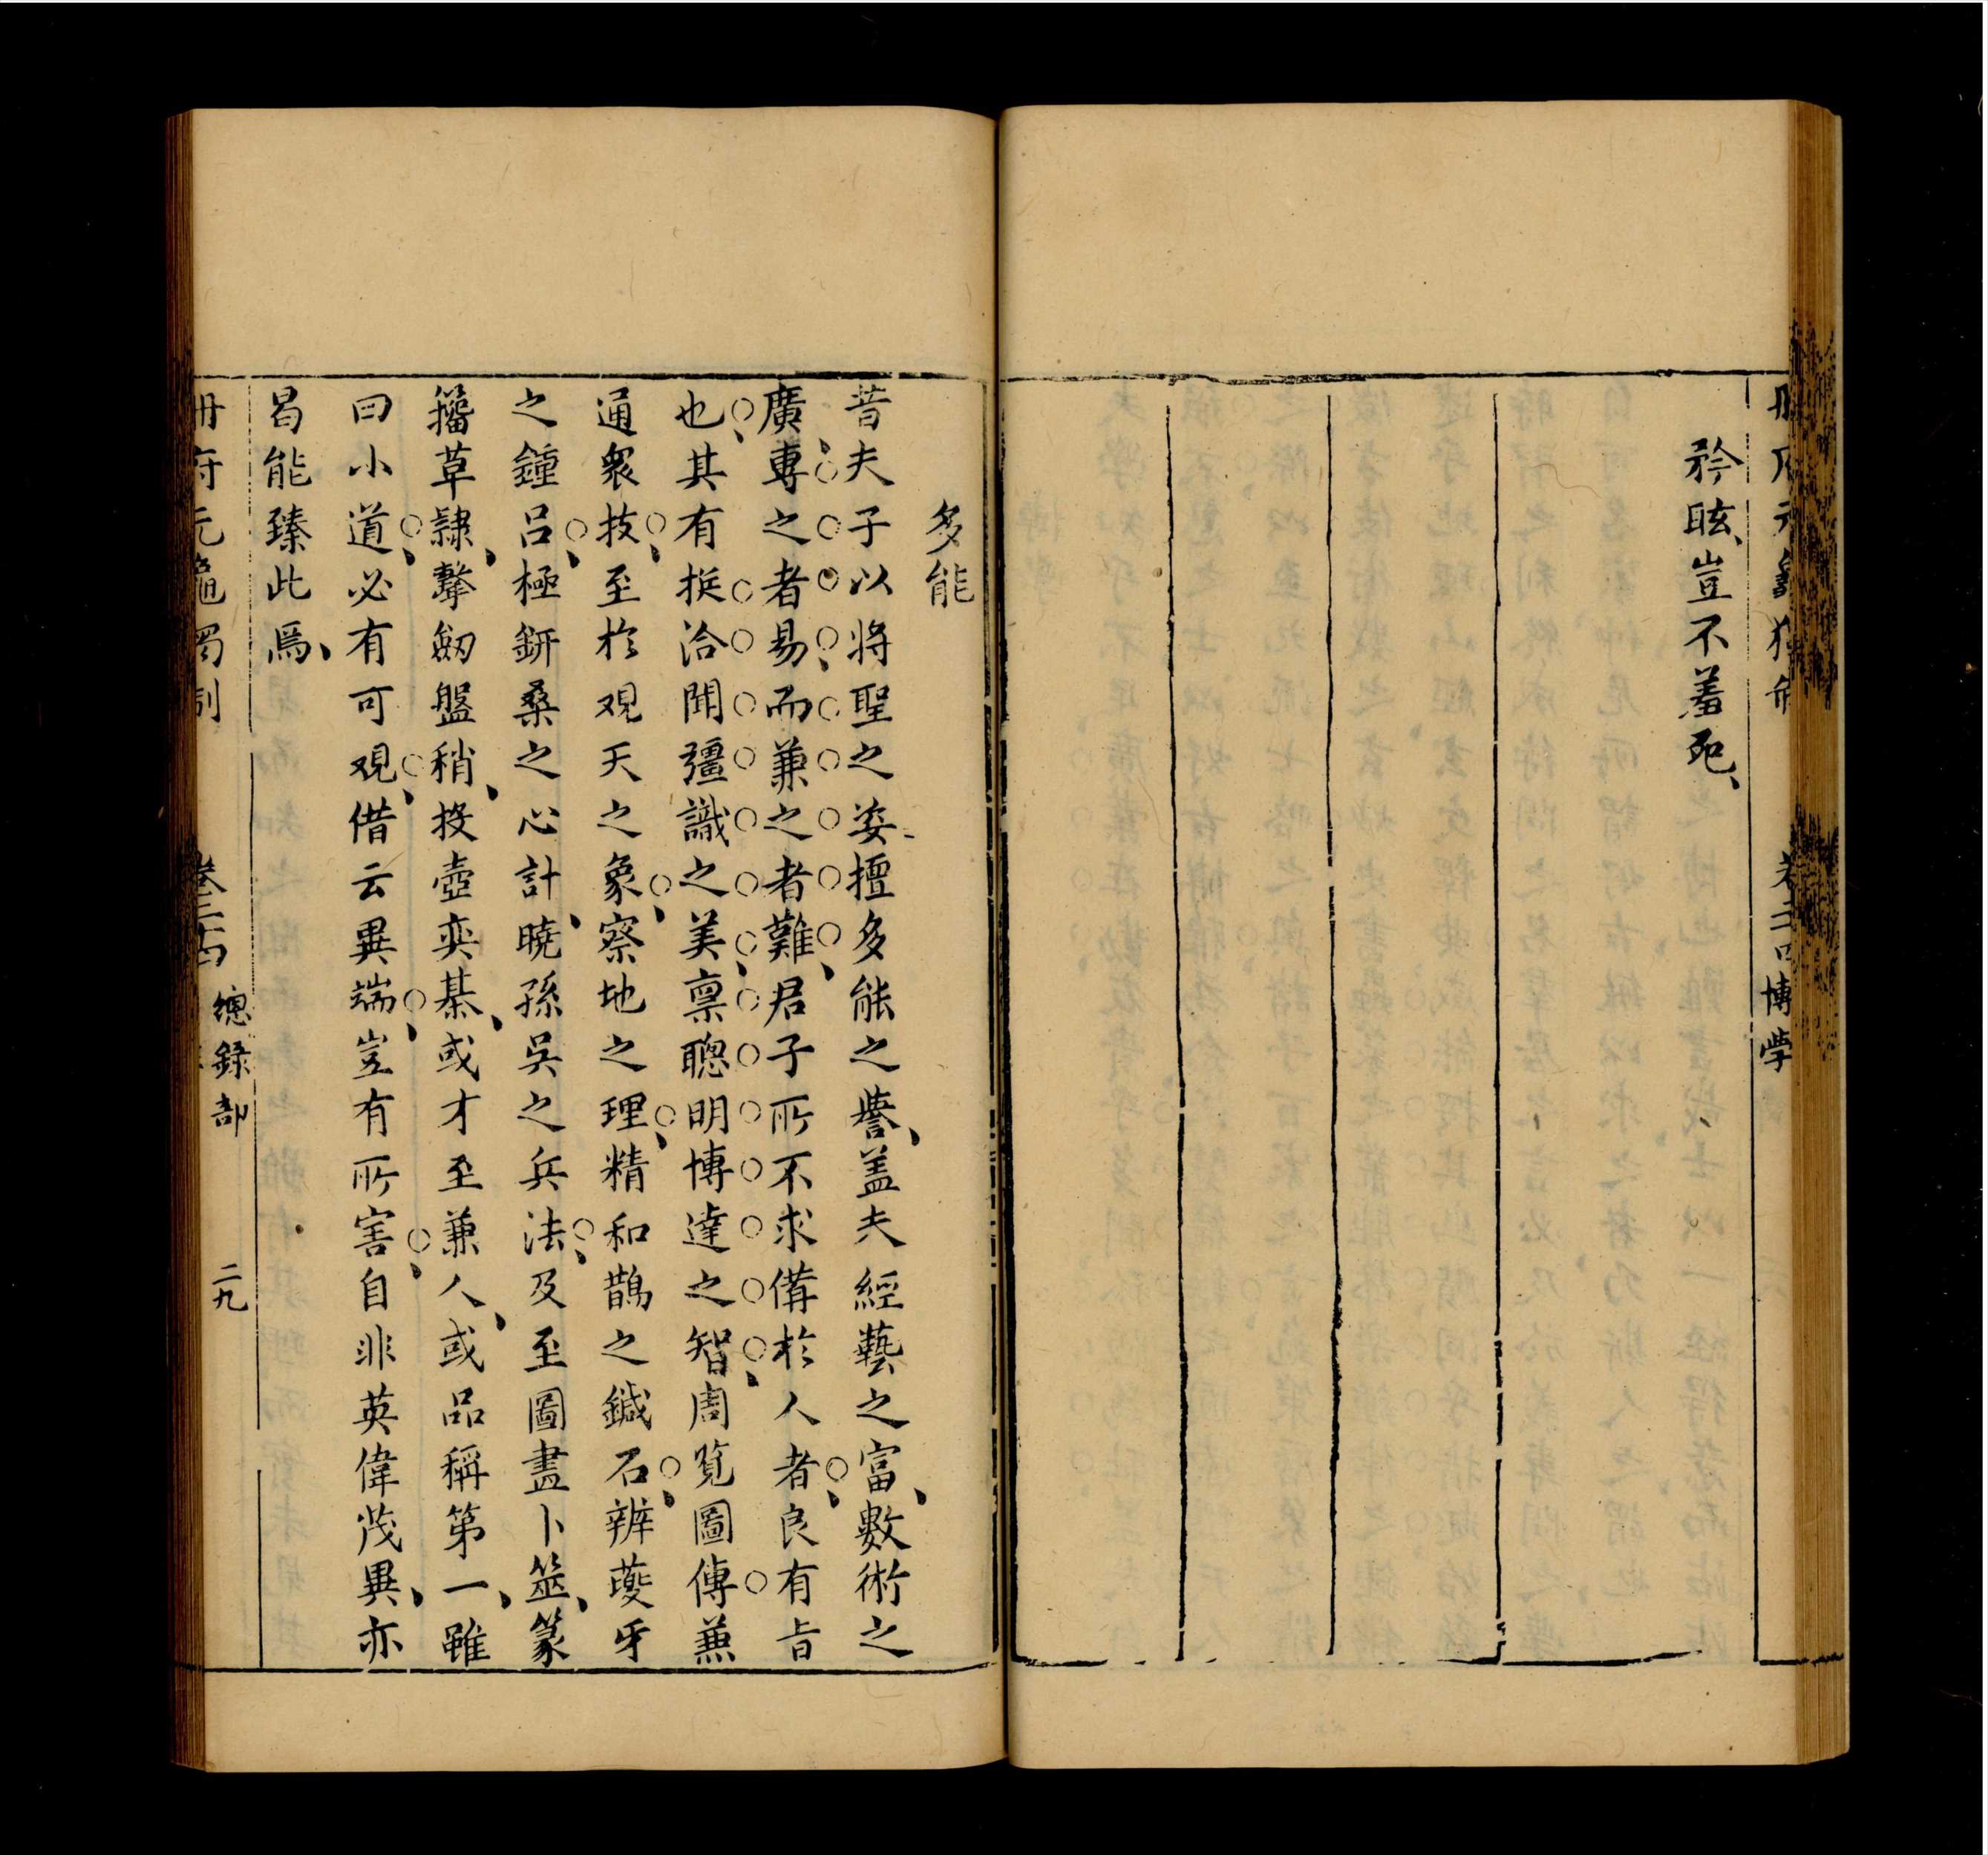 博學
矜眩豈不羞死
多能
昔夫子以将聖之姿擅多能之譽盖夫經藝之富數術之
廣專之者易而兼之者難君子所不求備於人者良有旨
也其有挺洽聞彊識之美禀聰明博達之智周覧圖傳兼
通衆技至於观天之象察地之理精和鵲之鍼石辨夔牙
之鐘吕極研桑之心計曉孫吳之兵法及至圖畫卜筮篆
籀草隷擊劒盤稍投壺奕碁或才至兼人或品稱第一雖
曰小道必有可观借云異端岂有所害自非英偉茂異亦
曷能臻此焉
冊府元龜獨制
卷二十四
總錄部
二九